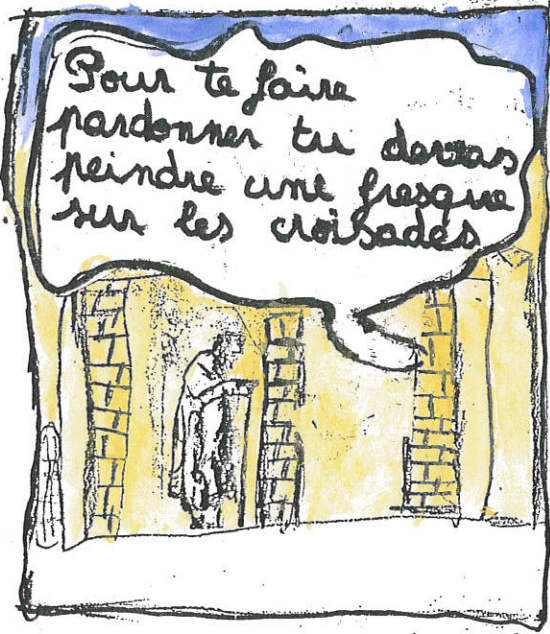 Pour te faire
pardonner tu devras
peindre une fresque
sur les croisades